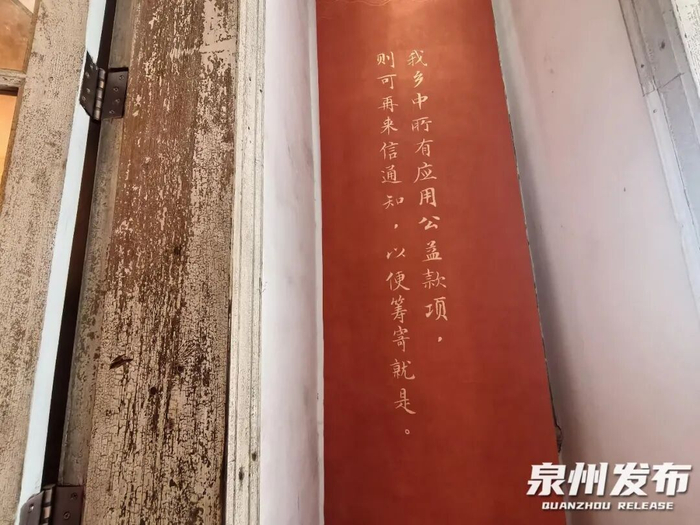 我乡中所有应用公益款项，
则可再来信通知，以便筹寄就是。
泉州发布
QUANZHOU RELEASE